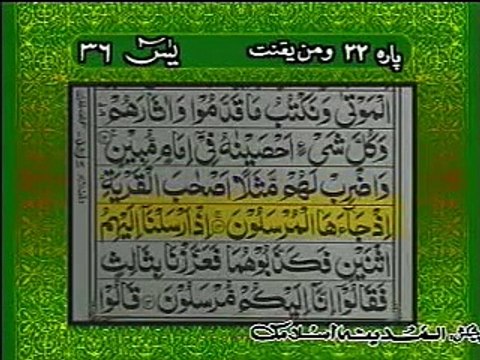 پاره ۲۲ ومن یقنت یٰسٓ ۳۶
الْمَوْتٰی وَنَكْتُبُ مَا قَدَّمُوْا وَاٰثَارَهُمْ
وَكُلَّ شَیْءٍ اَحْصَیْنٰهُ فِیْۤ اِمَامٍ مُّبِیْنٍ
وَاضْرِبْ لَهُمْ مَّثَلًا اَصْحٰبَ الْقَرْیَةِ
اِذْ جَآءَهَا الْمُرْسَلُوْنَ اِذْ اَرْسَلْنَاۤ اِلَیْهِمُ
اثْنَیْنِ فَكَذَّبُوْهُمَا فَعَزَّزْنَا بِثَالِثٍ
فَقَالُوْۤا اِنَّاۤ اِلَیْكُمْ مُّرْسَلُوْنَ قَالُوْا
المدینه اسلامک